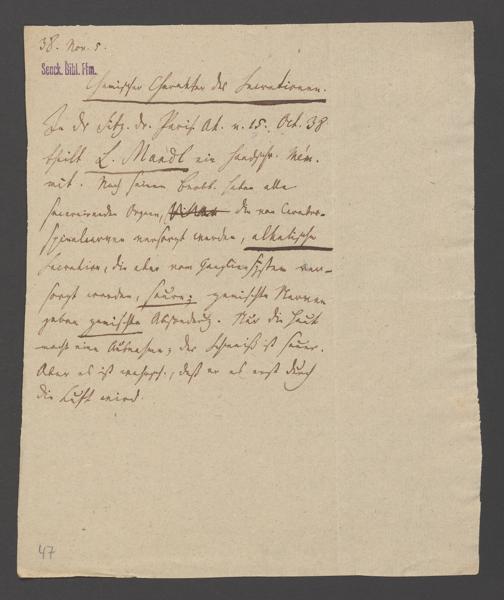 38. Nov. 5.
Senck. Bibl. Ffm.
Chemischer Charakter der Secretionen.
In der Sitz. der Paris. Ak. v. 15. Oct. 38
theilt L. Mandl ein handschr. Mém.
mit. Nach seinen Beobb. haben alle
secernirenden Organe, die von Cerebro-
spinalnerven versorgt werden, alkalische
Secretion, die aber vom Gangliensystem ver-
sorgt werden, saure; gemischte Nerven
geben gemischte Absonderung. Nur die Haut
macht eine Ausnahme; der Schweiß ist sauer.
Aber es ist wahrsch., daß er es erst durch
die Luft wird.
47